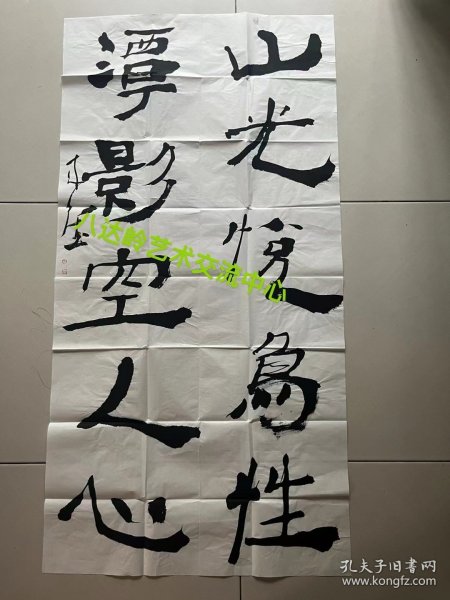 山光悦鸟性
潭影空人心
八达岭艺术交流中心
孔夫子旧书网
www.kongfz.com